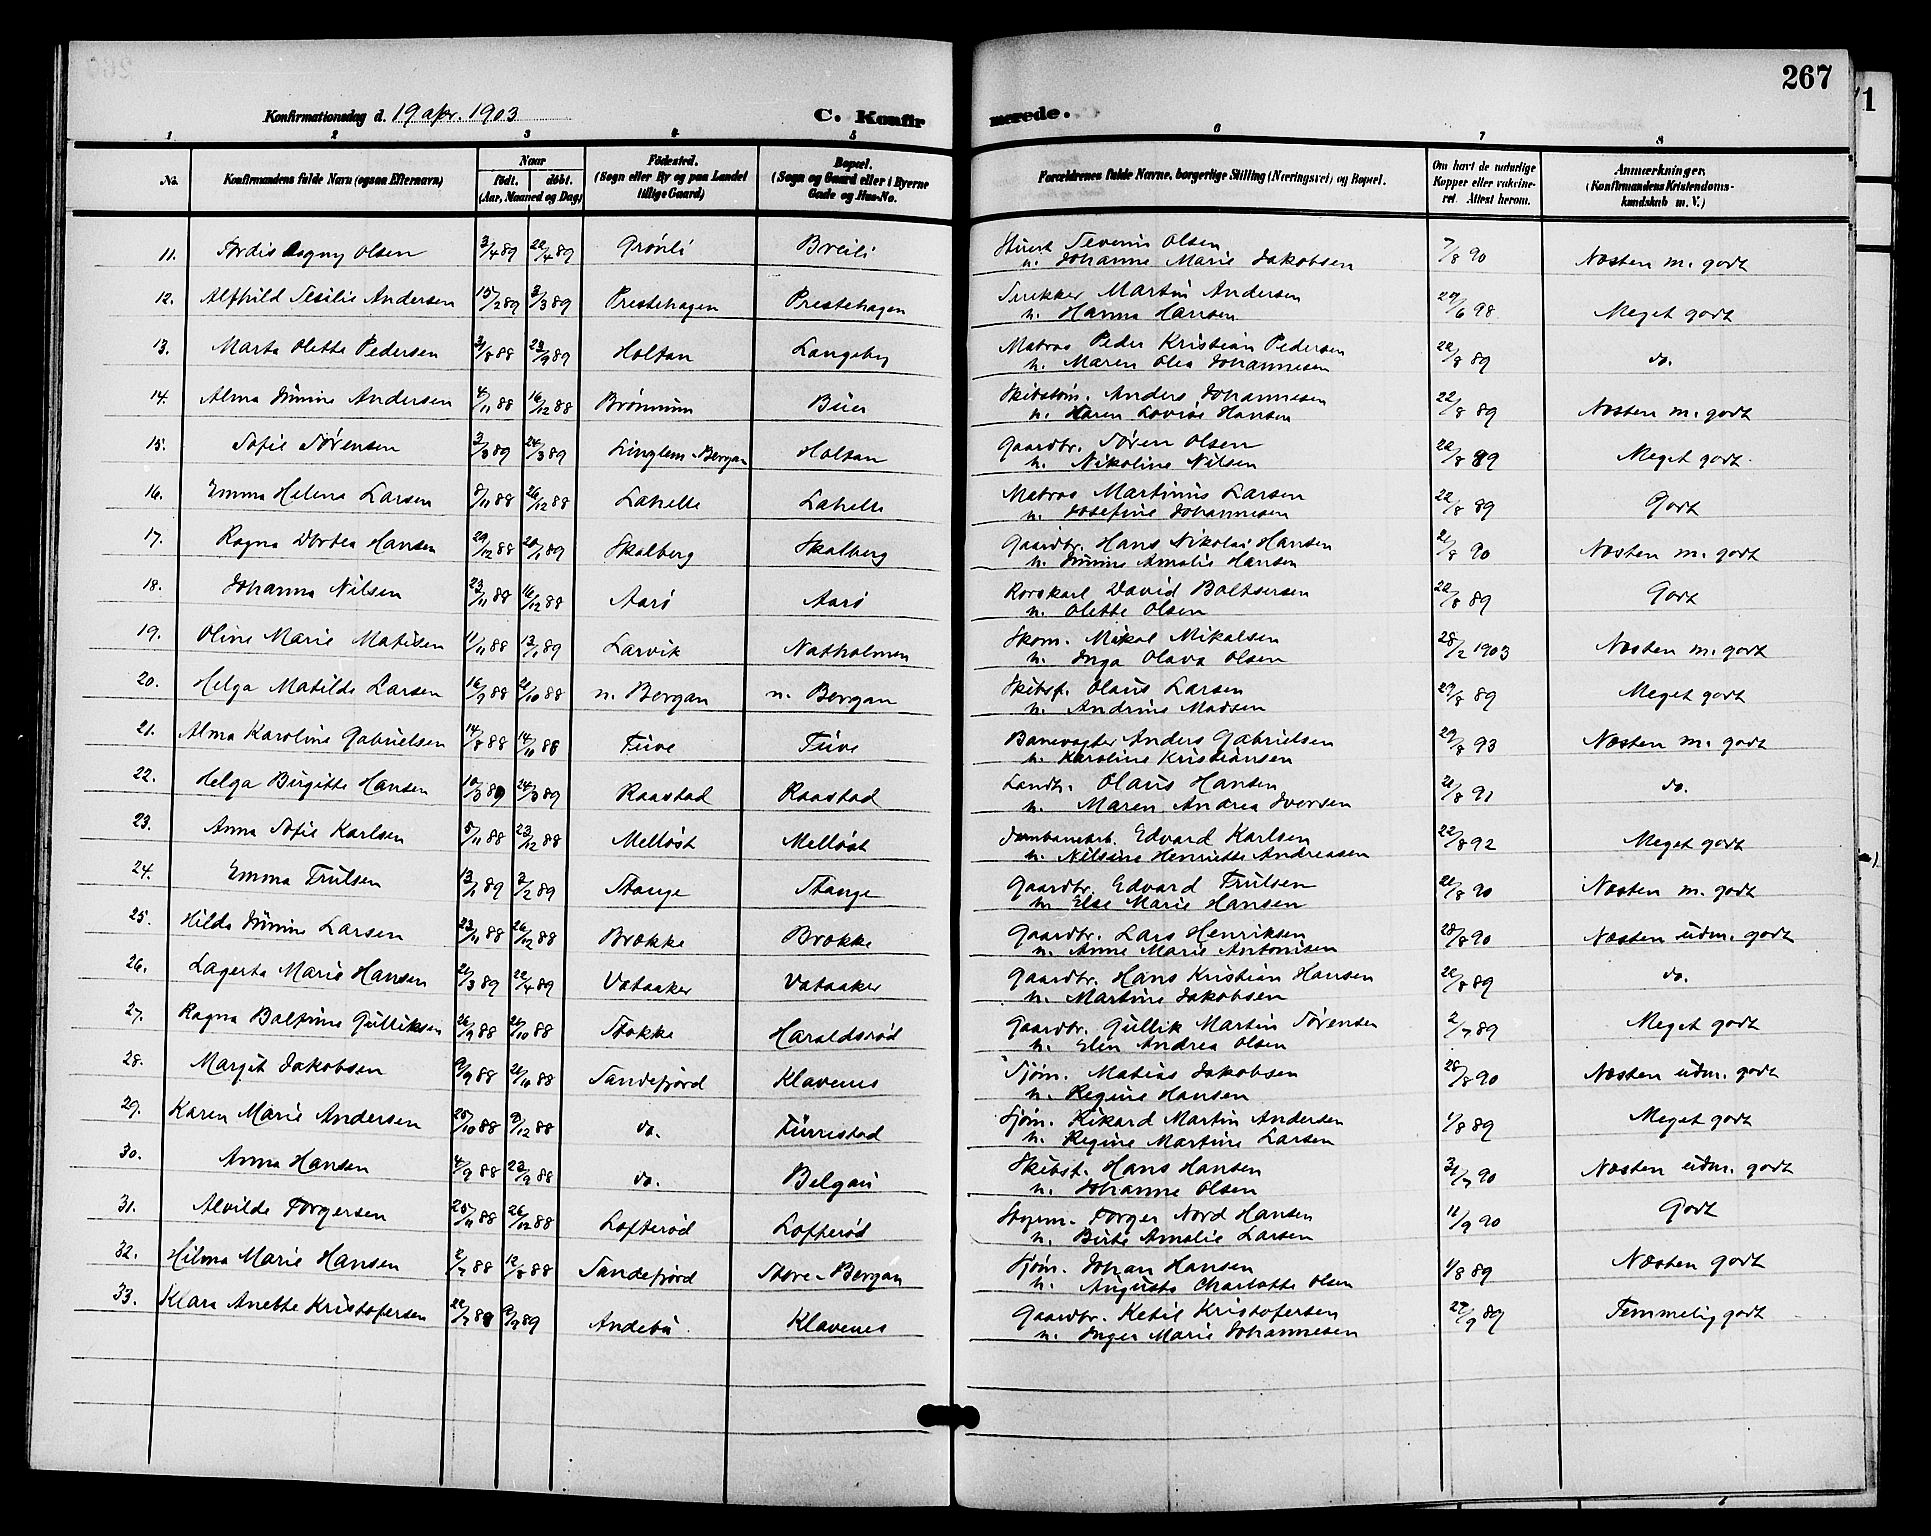 267
Konfirmationsdag d. 19 apr. 1903
C. Konfirmerede.
1 2 3 4 5 6 7 8
No. Konfirmandens fulde Navn (ogsaa Efternavn) Naar født. døbt. (Aar, Maaned og Dag) Fødested. (Sogn eller By og paa Landet tillige Gaard) Bopæl. (Sogn og Gaard eller i Byerne Gade og Hus-No. Forældrenes fulde Navne, borgerlige Stilling (Næringsvei) og Bopæl. Om havt de naturlige Kopper eller vakcineret. Attest herom. Anmærkninger. (Konfirmandens Kristendomskundskab m. V.)
11. Tordis Aagny Olsen 3/4 89 22/4 89 Grønli Breili Severin Olsen 7/8 90 Næsten m. godt
n. Johanne Marie Jakobsen
12. Alfhild Sesilie Andersen 15/2 89 3/3 89 Prestehagen Prestehagen Snekker Martin Andersen 29/6 98 Meget godt
n. Hanna Hansen
13. Marta Olette Pedersen 31/8 88 23/9 89 Holtan Langeby Matros Peder Kristian Pedersen 22/8 89 do.
n. Maren Olea Johannesen
14. Alma Andersen 4/11 88 16/12 88 Brønnum Buer Skibstøm. Anders Johannesen 22/8 89 Næsten m. godt
n. Karen Lovise Hansen
15. Sofie Sørensen 3/3 89 24/3 89 Bergan Holtan Gaardbr. Søren Olsen 22/8 89 Meget godt
n. Nikoline Nilsen
16. Emma Helene Larsen 8/11 88 26/12 88 Lahelle Lahelle Matros Martinus Larsen 22/8 89 Godt
n. Josefine Johannesen
17. Ragna Dortea Hansen 29/12 88 20/1 89 Skalberg Skalberg Gaardbr. Hans Nikolai Hansen 21/8 90 Næsten m. godt
n. Amalie Hansen
18. Johanna Nilsen 23/11 88 16/12 88 Aarø Aarø Rorskarl David Baltsersen 22/8 89 Godt
n. Olette Olsen
19. Oline Marie Matisen 11/11 88 13/1 89 Larvik Natholmen Skom. Mikal Mikalsen 28/2 1903 Næsten m. godt
n. Inga Olava Olsen
20. Helga Matilde Larsen 16/9 88 21/10 88 n. Bergan n. Bergan Skibsf. Olaus Larsen 29/8 89 Meget godt
n. Andrine Madsen
21. Alma Karoline Gabrielsen 14/8 88 14/10 88 Tuve Tuve Banevogter Anders Gabrielsen 29/8 93 Næsten m. godt
n. Karoline Kristiansen
22. Helga Birgitte Hansen 10/3 89 24/3 89 Raastad Raastad Landh. Olaus Hansen 21/8 91 do.
n. Maren Andrea Iversen
23. Anna Sofie Karlsen 5/11 88 23/12 88 Melløst Melløst Jernbanearb. Edvard Karlsen 22/8 92 Meget godt
n. Nilsine Henriette Andreasen
24. Emma Trulsen 13/1 89 3/2 89 Stange Stange Gaardbr. Edvard Trulsen 21/8 90 Næsten m. godt
n. Else Marie Hansen
25. Hilda Larsen 23/11 88 26/12 88 Brække Brække Gaardbr. Lars Henriksen 28/8 90 Næsten udm. godt
n. Anne Marie Antonisen
26. Lagerta Marie Hansen 21/3 89 22/4 89 Vataaker Vataaker Gaardbr. Hans Kristian Hansen 22/8 89 do.
n. Martine Jakobsen
27. Ragna Balfine Gulliksen 26/9 88 21/10 88 Stokke Haraldsrød Gaardbr. Gullik Martin Sørensen 2/7 89 Meget godt
n. Elen Andrea Olsen
28. Margit Jakobsen 9/9 88 21/10 88 Sandefjord Klavenes Sjøm. Matias Jakobsen 28/8 90 Næsten udm. godt
n. Regine Hansen
29. Karen Marie Andersen 25/10 88 9/12 88 do. Furrestad Sjøm. Rikard Martin Andersen 1/8 89 Meget godt
n. Regine Martine Larsen
30. Anna Hansen 4/9 88 23/9 88 do. Belgau Skibsf. Hans Hansen 31/7 90 Næsten udm. godt
n. Johanne Olsen
31. Alvilde Torgersen 25/11 88 26/12 88 Lofterød Lofterød Torger Nord Hansen 11/9 90 Godt
n. Birte Amalie Larsen
32. Hilma Marie Hansen 2/7 88 12/8 88 Sandefjord Store-Bergan Sjøm. Johan Hansen 1/8 89 Næsten godt
n. Augusta Charlotte Olsen
33. Klara Anette Kristofersen 22/7 89 9/9 89 Andebu Klavenes Gaardbr. Ketil Kristofersen 27/9 89 Temmelig godt
n. Inger Marie Johannesen